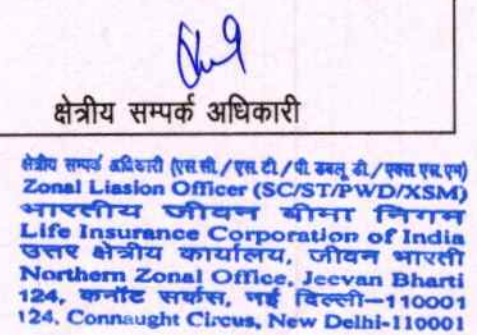 क्षेत्रीय सम्पर्क अधिकारी
क्षेत्रीय सम्पर्क अधिकारी (एस.सी./एस.टी./पी.डबलू.डी./एक्स.एस.एम)
Zonal Liasion Officer (SC/ST/PWD/XSM)
भारतीय जीवन बीमा निगम
Life Insurance Corporation of India
उत्तर क्षेत्रीय कार्यालय, जीवन भारती
Northern Zonal Office, Jeevan Bharti
124, कनॉट सर्कस, नई दिल्ली-110001
124, Connaught Circus, New Delhi-110001